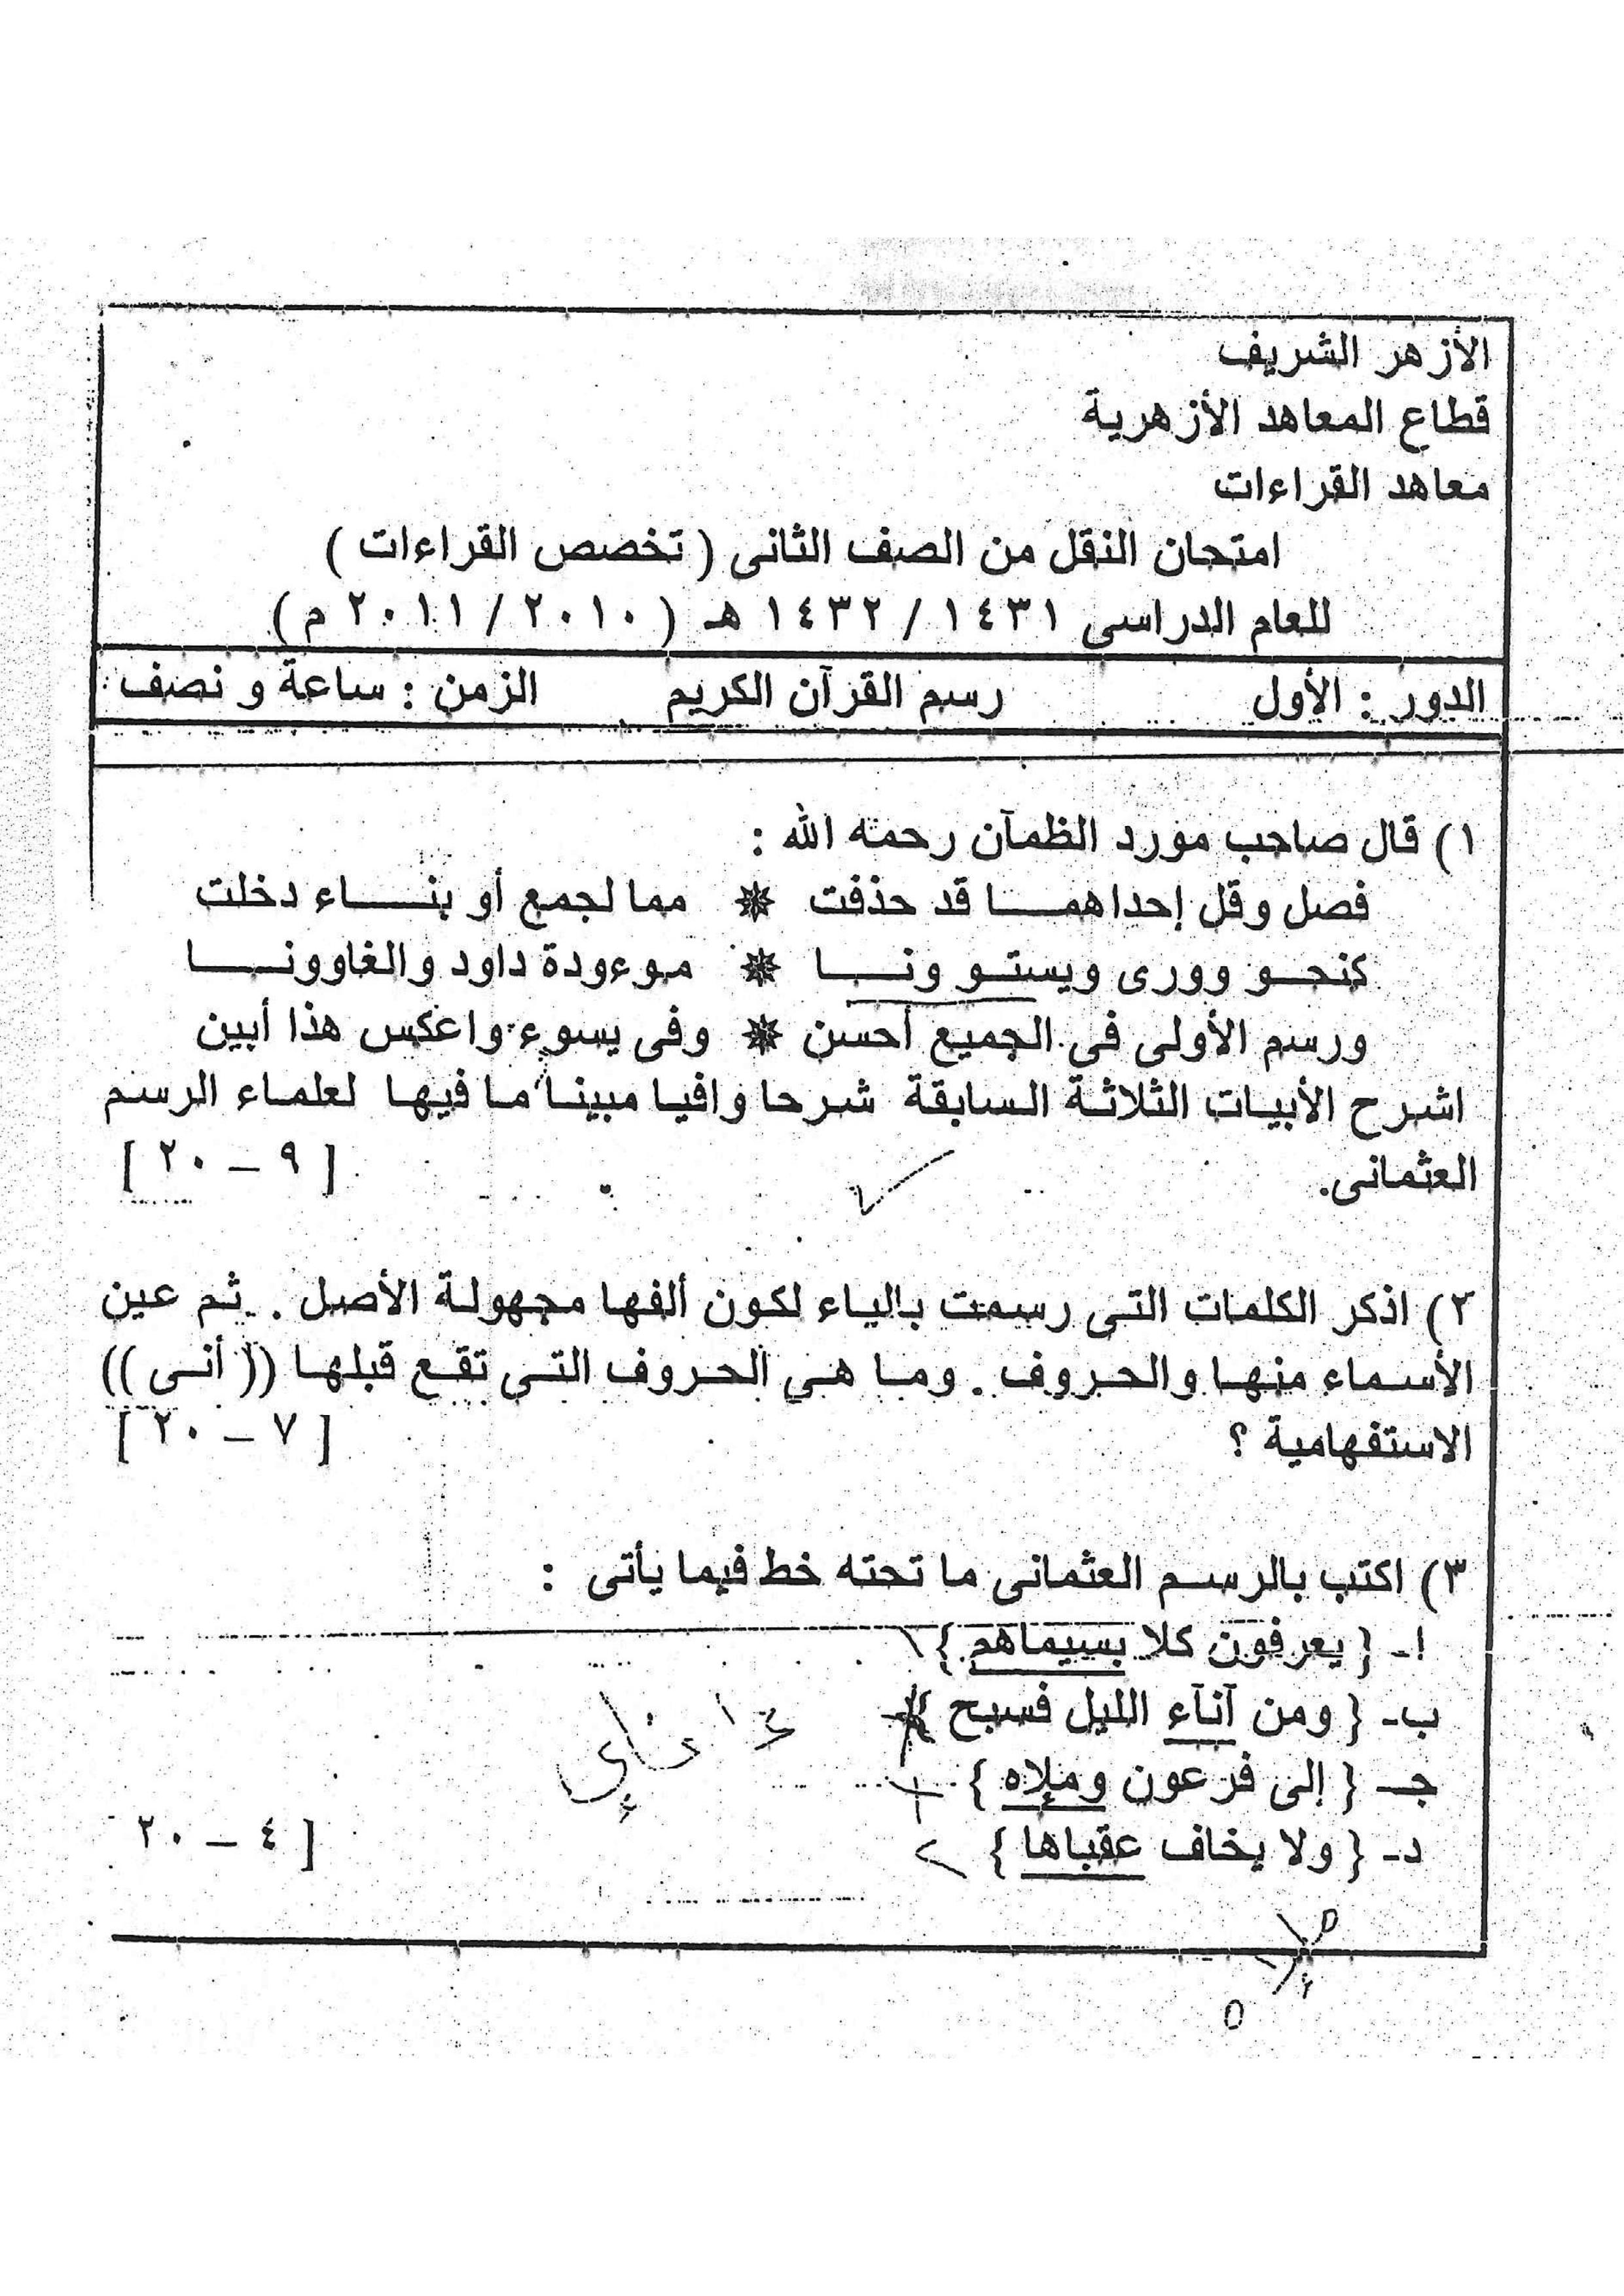 الأزهر الشريف
قطاع المعاهد الأزهرية
معاهد القراءات
امتحان النقل من الصف الثانى ( تخصص القراءات )
للعام الدراسى ١٤٣١ / ١٤٣٢ هـ ( ٢٠١٠ / ٢٠١١ م )
الدور : الأول رسم القرآن الكريم الزمن : ساعة و نصف
١) قال صاحب مورد الظمآن رحمه الله :
فصل وقل إحداهما قد حذفت ❋ مما لجمع أو بناء دخلت
كنحو وورى ويستو ونا ❋ موءودة داود والغاوونا
ورسم الأولى فى الجميع أحسن ❋ وفى يسوء واعكس هذا أبين
اشرح الأبيات الثلاثة السابقة شرحا وافيا مبينا ما فيها لعلماء الرسم
العثمانى. [ ٩ – ٢٠ ]
٢) اذكر الكلمات التى رسمت بالياء لكون ألفها مجهولة الأصل . ثم عين
الأسماء منها والحروف . وما هي الحروف التى تقع قبلها (( أنى ))
الاستفهامية ؟ [ ٧ – ٢٠ ]
٣) اكتب بالرسم العثمانى ما تحته خط فيما يأتى :
ا- { يعرفون كلا بسيماهم }
ب- { ومن آنآء الليل فسبح }
جـ { إلى فرعون وملإه }
د- { ولا يخاف عقباها } [ ٤ – ٢٠